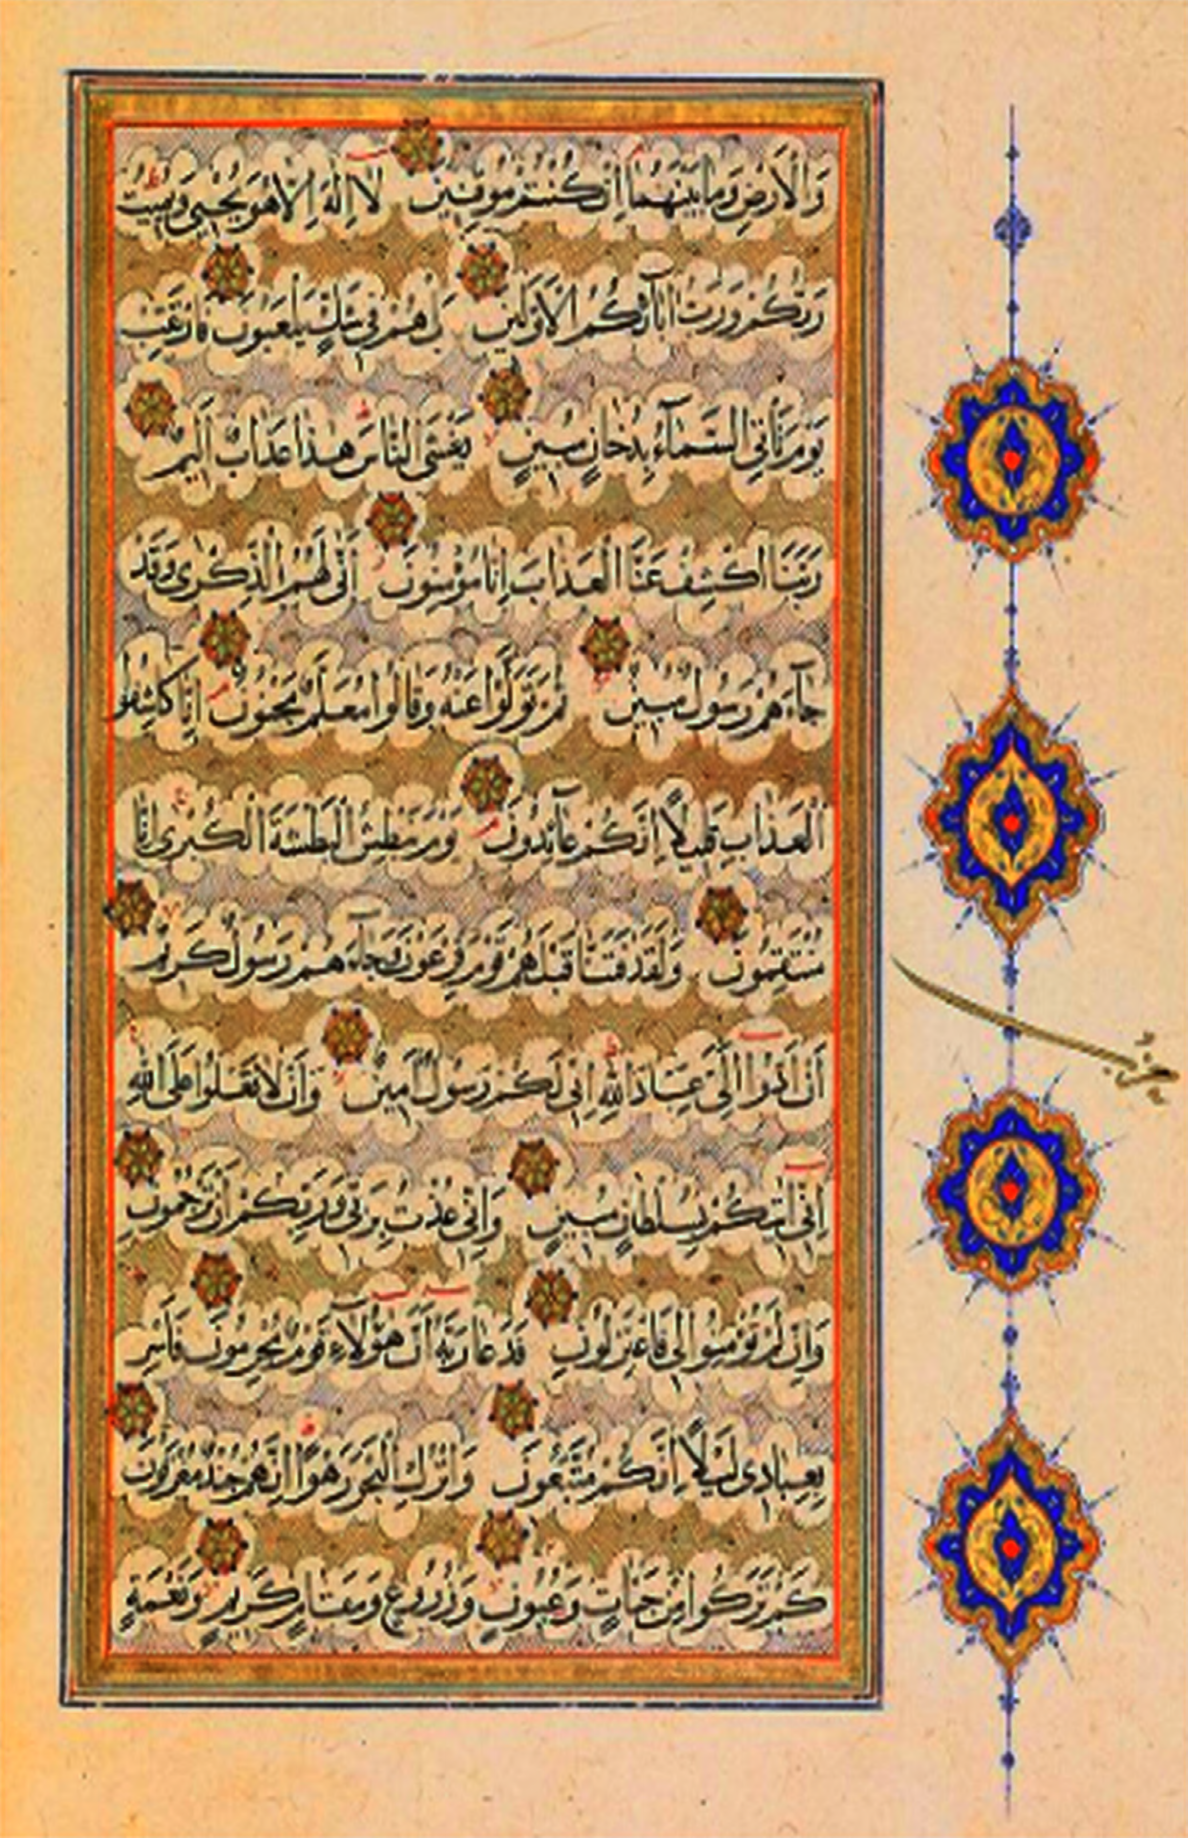 وَالْأَرْضِ وَمَا بَيْنَهُمَا إِنْ كُنْتُمْ مُوقِنِينَ لَا إِلٰهَ إِلَّا هُوَ يُحْيِي وَيُمِيتُ
رَبُّكُمْ وَرَبُّ آبَائِكُمُ الْأَوَّلِينَ بَلْ هُمْ فِي شَكٍّ يَلْعَبُونَ فَارْتَقِبْ
يَوْمَ تَأْتِي السَّمَاءُ بِدُخَانٍ مُبِينٍ يَغْشَى النَّاسَ هٰذَا عَذَابٌ أَلِيمٌ
رَبَّنَا اكْشِفْ عَنَّا الْعَذَابَ إِنَّا مُؤْمِنُونَ أَنَّى لَهُمُ الذِّكْرَى وَقَدْ
جَاءَهُمْ رَسُولٌ مُبِينٌ ثُمَّ تَوَلَّوْا عَنْهُ وَقَالُوا مُعَلَّمٌ مَجْنُونٌ إِنَّا كَاشِفُوا
الْعَذَابِ قَلِيلًا إِنَّكُمْ عَائِدُونَ يَوْمَ نَبْطِشُ الْبَطْشَةَ الْكُبْرَى إِنَّا
مُنْتَقِمُونَ وَلَقَدْ فَتَنَّا قَبْلَهُمْ قَوْمَ فِرْعَوْنَ وَجَاءَهُمْ رَسُولٌ كَرِيمٌ
أَنْ أَدُّوا إِلَيَّ عِبَادَ اللَّهِ إِنِّي لَكُمْ رَسُولٌ أَمِينٌ وَأَنْ لَا تَعْلُوا عَلَى اللَّهِ
إِنِّي آتِيكُمْ بِسُلْطَانٍ مُبِينٍ وَإِنِّي عُذْتُ بِرَبِّي وَرَبِّكُمْ أَنْ تَرْجُمُونِ
وَإِنْ لَمْ تُؤْمِنُوا لِي فَاعْتَزِلُونِ فَدَعَا رَبَّهُ أَنَّ هٰؤُلَاءِ قَوْمٌ مُجْرِمُونَ فَأَسْرِ
بِعِبَادِي لَيْلًا إِنَّكُمْ مُتَّبَعُونَ وَاتْرُكِ الْبَحْرَ رَهْوًا إِنَّهُمْ جُنْدٌ مُغْرَقُونَ
كَمْ تَرَكُوا مِنْ جَنَّاتٍ وَعُيُونٍ وَزُرُوعٍ وَمَقَامٍ كَرِيمٍ وَنَعْمَةٍ